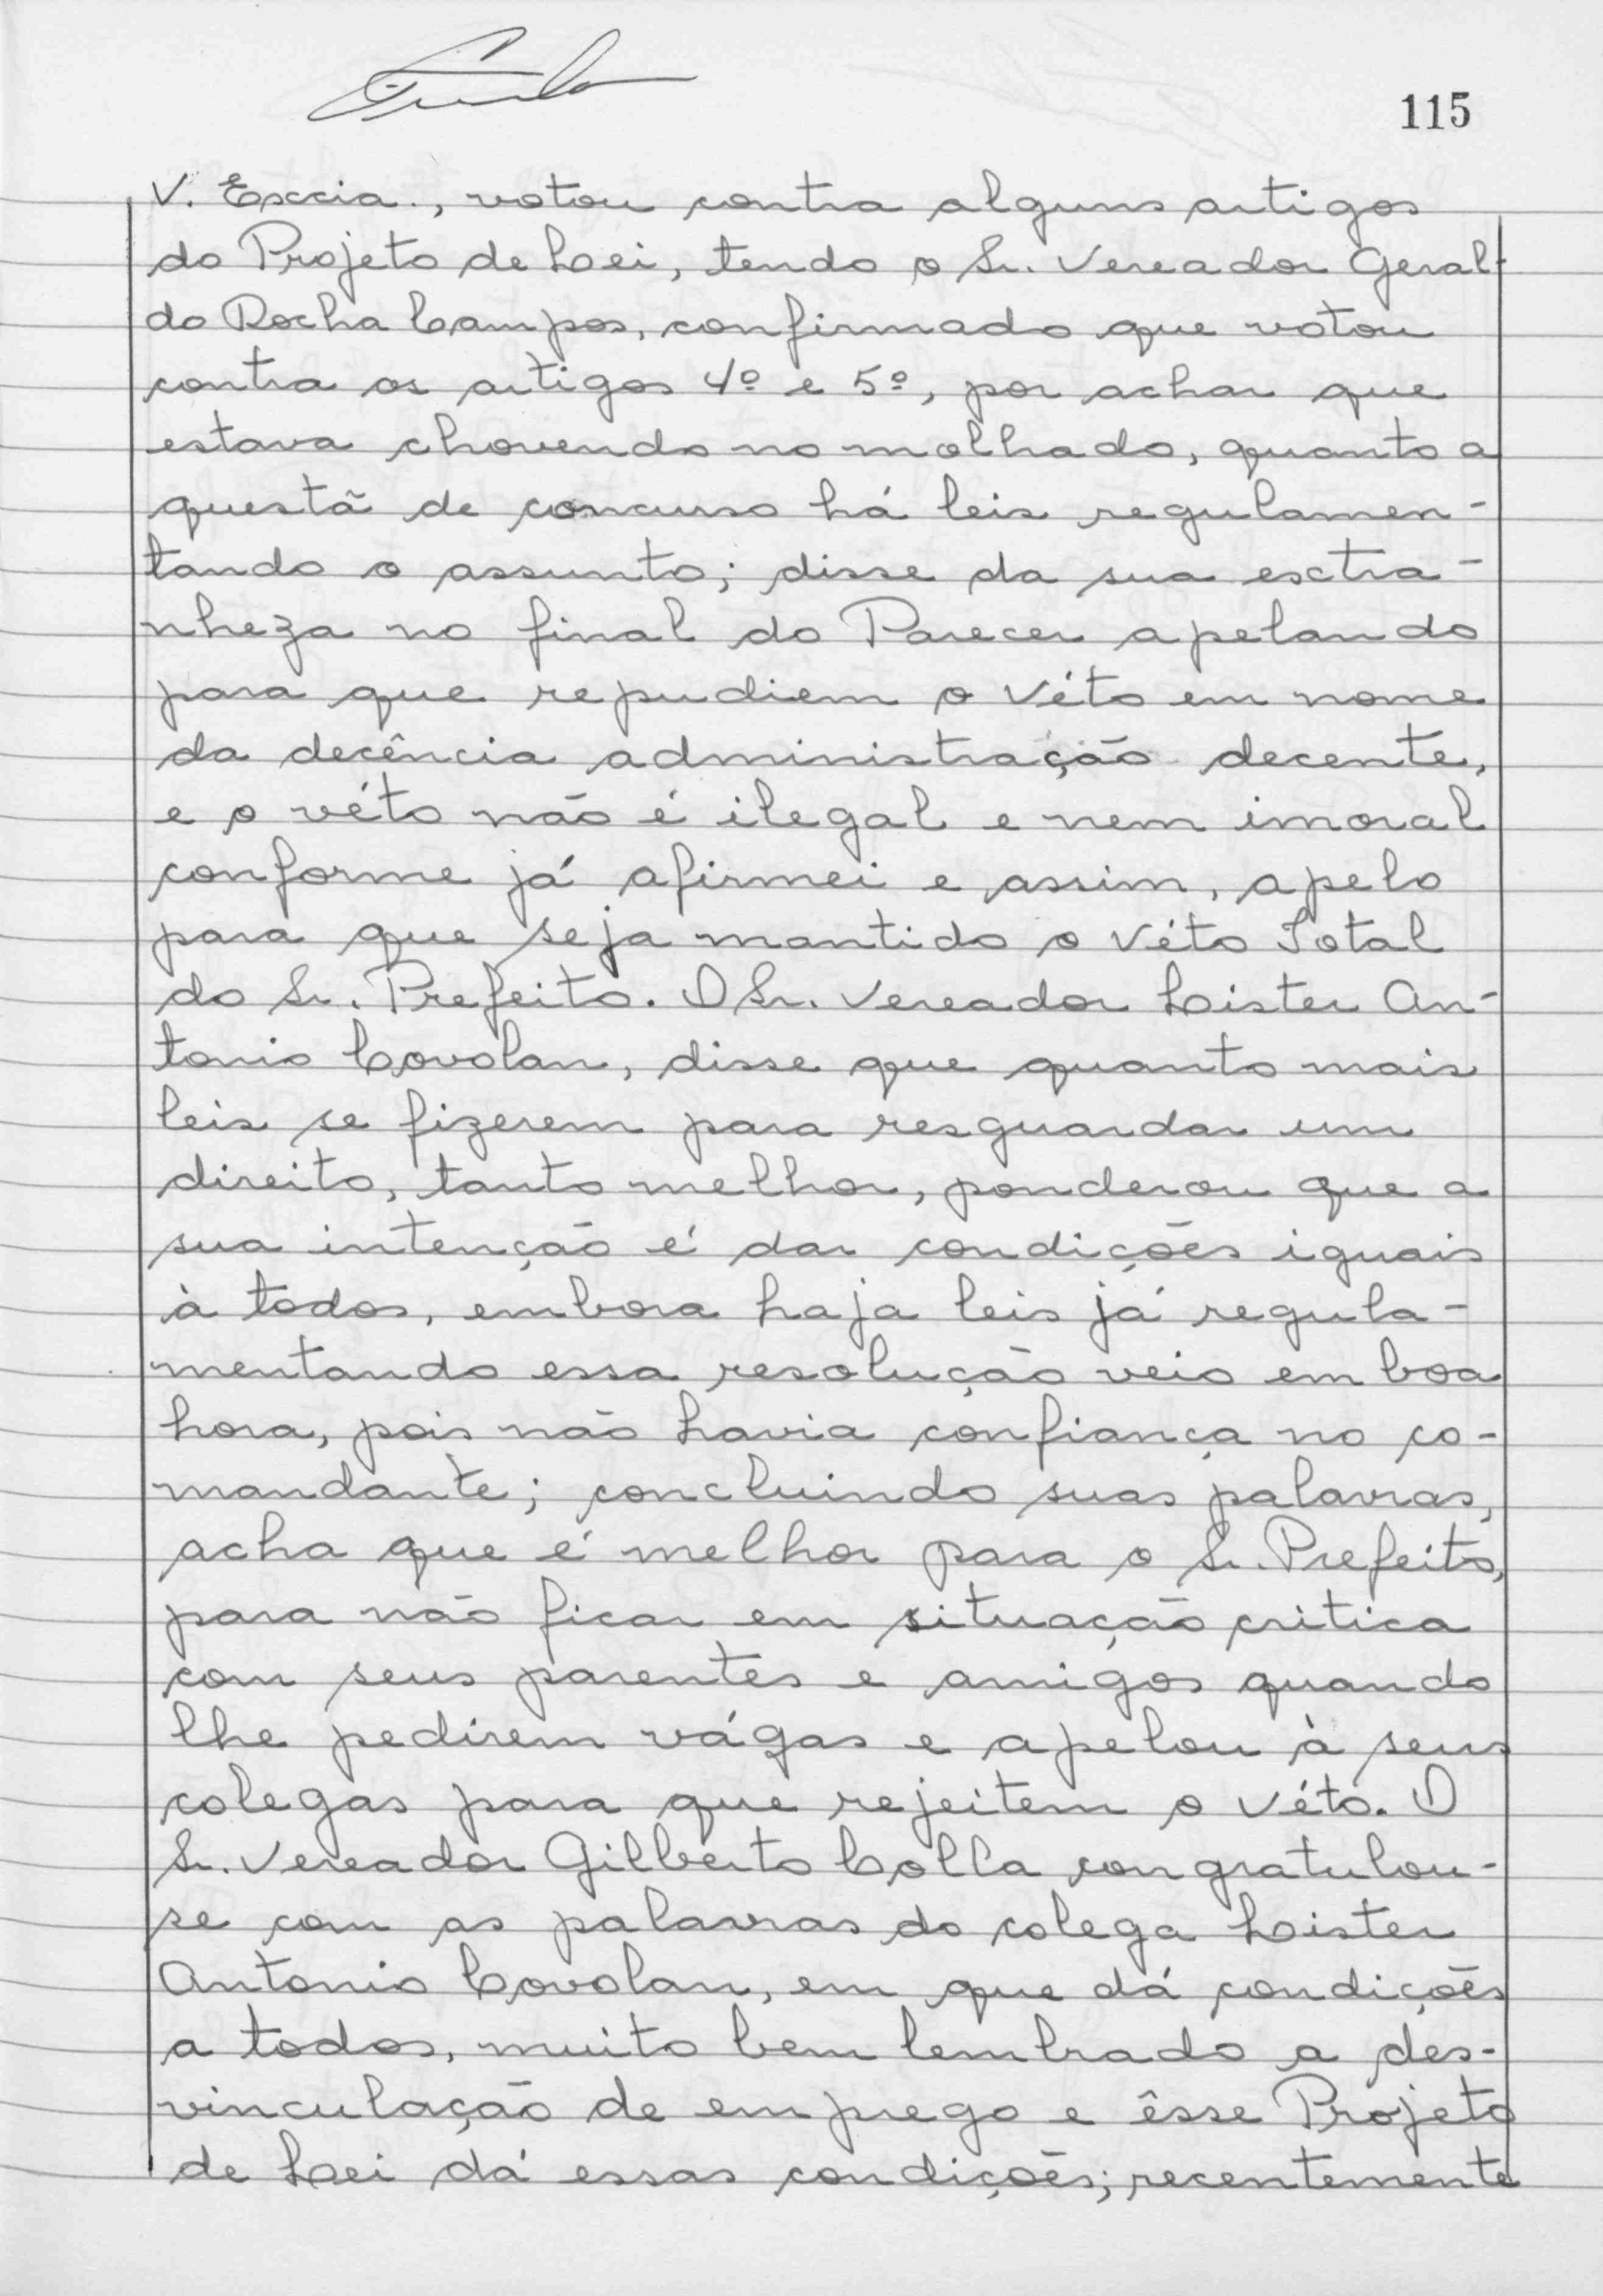 115
V. Excia., votou contra alguns artigos
do Projeto de Lei, tendo o Sr. Vereador Geral-
do Rocha Campos, confirmado que votou
contra os artigos 4º e 5º, por achar que
estava chovendo no molhado, quanto a
questã de concurso há leis regulamen-
tando o assunto; disse da sua extra-
nheza no final do Parecer apelando
para que repudiem o Véto em nome
da decência administração decente,
e o véto não é ilegal e nem imoral
conforme já afirmei e assim, apelo
para que seja mantido o Véto Total
do Sr. Prefeito. O Sr. Vereador Lister An-
tonio Covolan, disse que quanto mais
leis se fizerem para resguardar um
direito, tanto melhor, ponderou que a
sua intenção é dar condições iguais
à todos, embora haja leis já regula-
mentando essa resolução veio em boa
hora, pois não havia confiança no co-
mandante; concluindo suas palavras,
acha que é melhor para o Sr. Prefeito,
para não ficar em situação critica
com seus parentes e amigos quando
lhe pedirem vágas e apelou à seus
colegas para que rejeitem o Véto. O
Sr. Vereador Gilberto Colla congratulou-
se com as palavras do colega Lister
Antonio Covolan, em que dá condições
a todos, muito bem lembrado a des-
vinculação de emprego e êsse Projeto
de Lei dá essas condições; recentemente